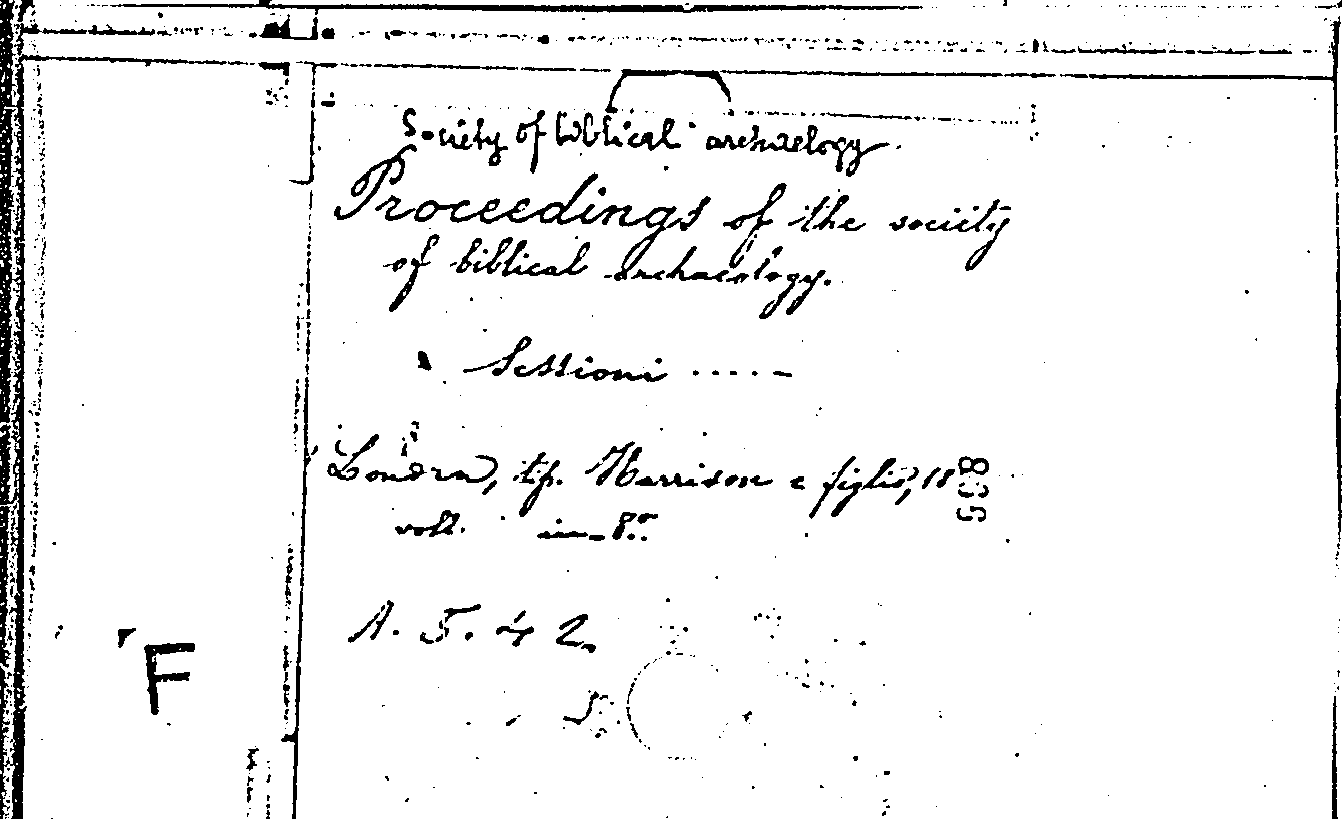 Society of biblical archaelogy
Proceedings of the society
of biblical archaeology.
Sessioni .....
Londra, tip. Harrison e figlio, 18
voll. in-8.º
A. 5. 42
F